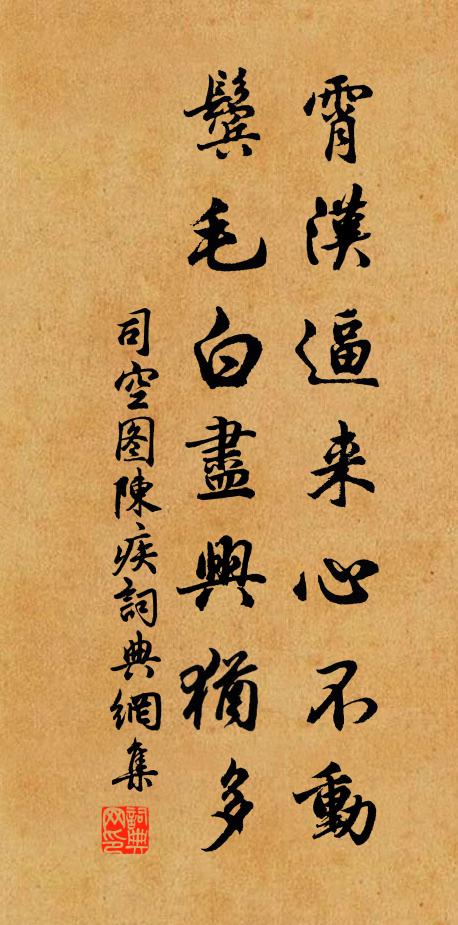 霄漢逼来心不動
鬓毛白盡興猶多
司空图陳疾詞典網集
詞典
网印